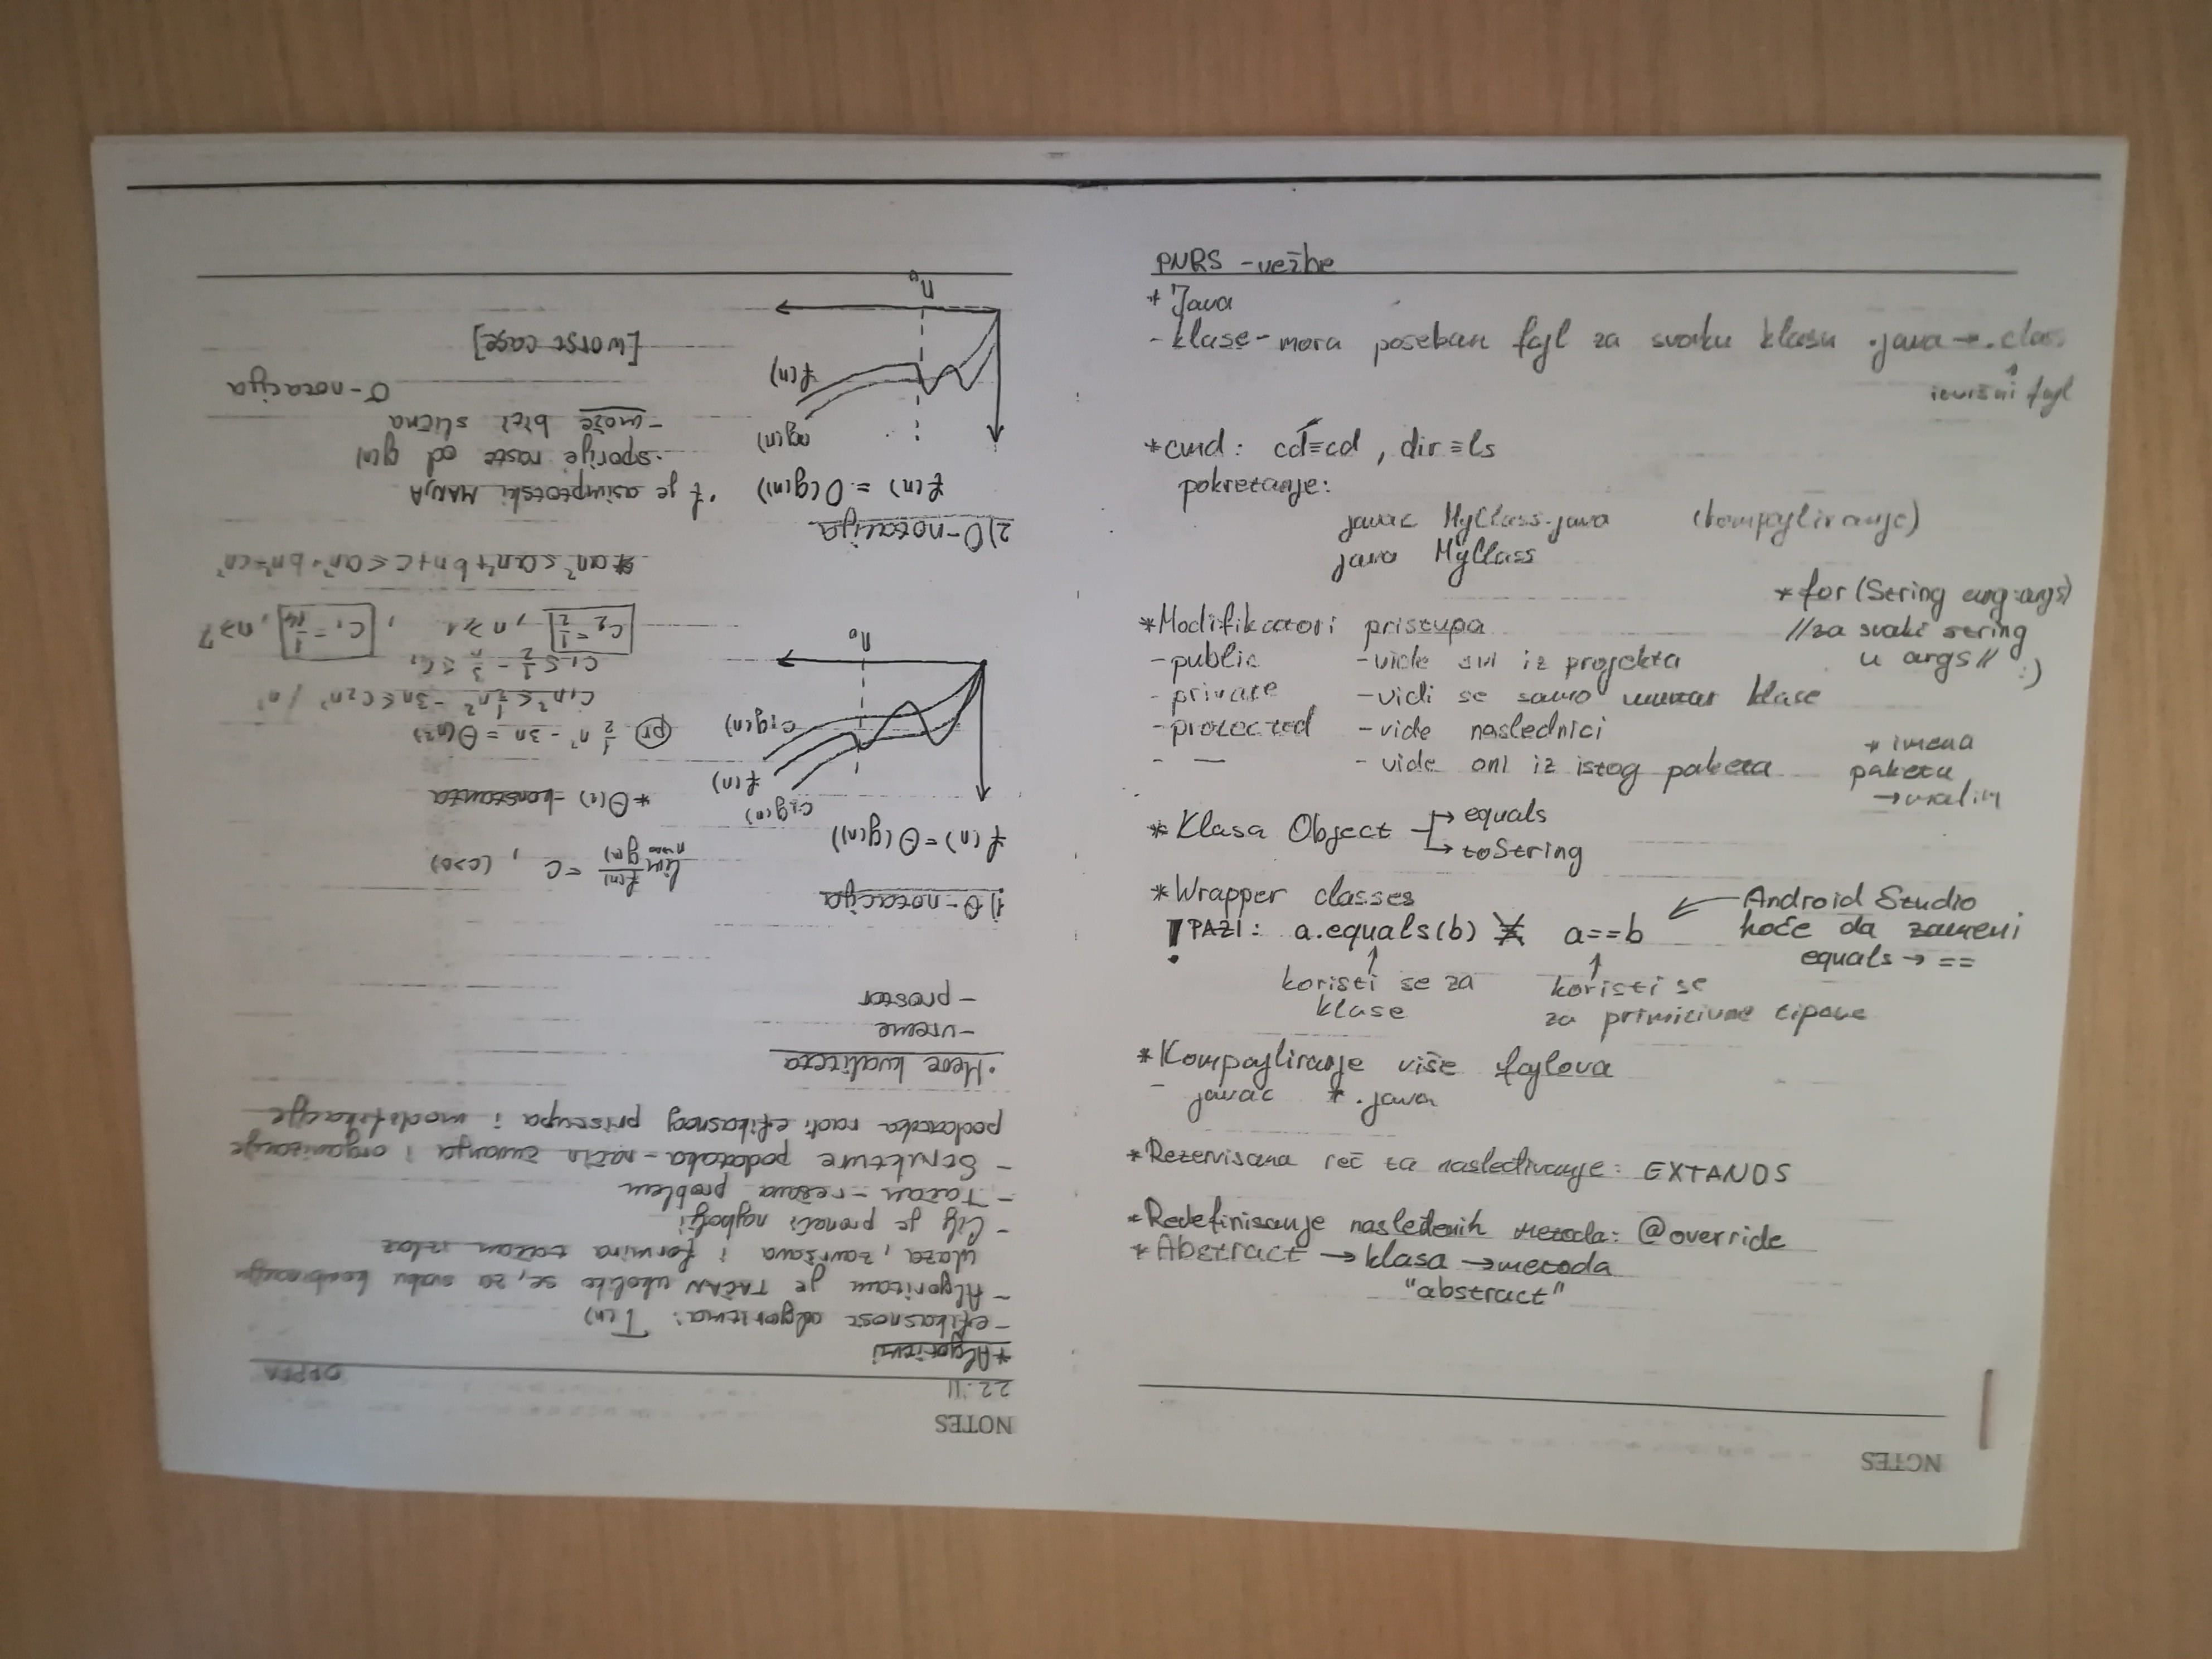 NOTES
PURS - vežbe
* Java
- klase - mora poseban fajl za svaku klasu .java → .class
izvršni fajl
* cmd: cd≡cd, dir≡ls
pokretanje:
javac MyClass.java (kompajliranje)
java MyClass
* for (String arg: args)
//za svaki string
u args //
:)
* Modifikatori pristupa
- public - vide svi iz projekta
- private - vidi se samo unutar klase
- protected - vide naslednici
- — - vide oni iz istog paketa
* imena
paketa
→ malim
* Klasa Object → equals
→ toString
* Wrapper classes
Android Studio
hoće da zameni
equals → ==
! PAZI: a.equals(b) ≠ a==b
koristi se za klase
koristi se za primitivne tipove
* Kompajliranje više fajlova
- javac *.java
* Rezervisana reč za nasleđivanje: EXTANDS
* Redefinisanje nasleđenih metoda: @override
* Abstract → klasa → metoda
"abstract"
NOTES
22.11
OPPFA
* Algoritmi
- efikasnost algoritma: T(n)
- Algoritam je TAČAN ukoliko se, za svaku kombinaciju
ulaza, završava i formira tačan izlaz
- Cilj je pronaći najbolji
- Tačan - rešava problem
- Strukture podataka - način čuvanja i organizacije
podataka radi efikasnog pristupa i modifikacije
· Mere kvaliteta
- vreme
- prostor
1) Θ-notacija
lim n→∞ f(n)/g(n) = c , (c>0)
f(n) = Θ(g(n))
* Θ(1) - konstanta
c₂g(n)
f(n)
c₁g(n)
n₀
pr 1/2 n² - 3n = Θ(n²)
c₁n² ≤ 1/2 n² - 3n ≤ c₂n² / n²
c₁ ≤ 1/2 - 3/n ≤ c₂
c₂ = 1/2 , n ≥ 1 , c₁ = 1/14 , n ≥ 7
* an² ≤ an² + bn + c ≤ an² + bn² + cn²
2) O-notacija
f(n) = O(g(n))
· f je asimptotski MANJA
· sporije raste od g(n)
- može biti slična
O-notacija
[worst case]
ng(n)
f(n)
n₀